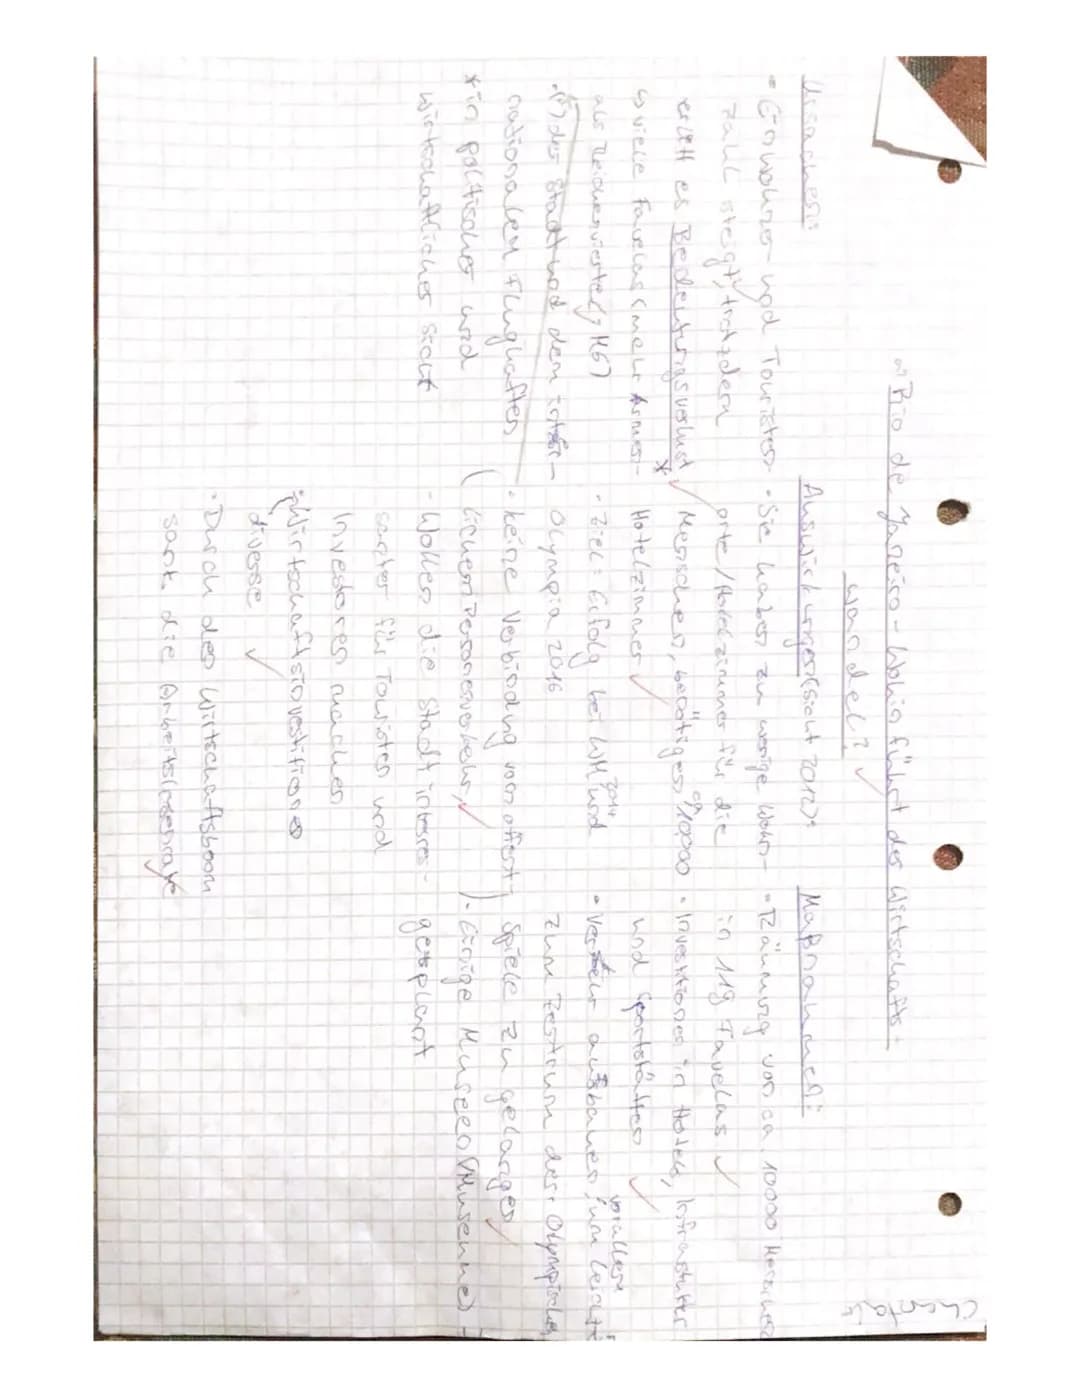 Rio de Janeiro - Wohin führt der Wirtschafts-
wandel?
Ursachen:
• Einwohner und Touristen-
zahl steigt, trotzdem
erlitt es Bedeutungsverlust *
↳ viele Favelas (mehr Armen-
als Reichenviertel, M6)
der Stadt und dem inter-
nationalen Flughafen
* in politischer und
wirtschaftlicher Sicht
Auswirkungen (Sicht 2012):
• Sie haben zu wenige Wohn-
orte/Hotelzimmer für die
Menschen, benötigen 10000
Hotelzimmer
• Ziel: Erfolg bei WM 2014 und
Olympia 2016
• keine Verbindung vom öffent-
lichen Personenverkehr,
• Wollen die Stadt interes-
santer für Touristen und
Investoren machen
• Wirtschaftsinvestitionen
diverse
• Durch den Wirtschaftsboom
sank die Arbeitslosenrate
Maßnahmen:
• Räumung von ca. 10000 Menschen
in 119 Favelas
• Investitionen in Hotels, Infrastruktur
und Sportstätten
• Verkehr ausbauen, vorallem um leicht
zum Zentrum der Olympischen
Spiele zu gelangen
• Einige Museen (Museume)
geplant